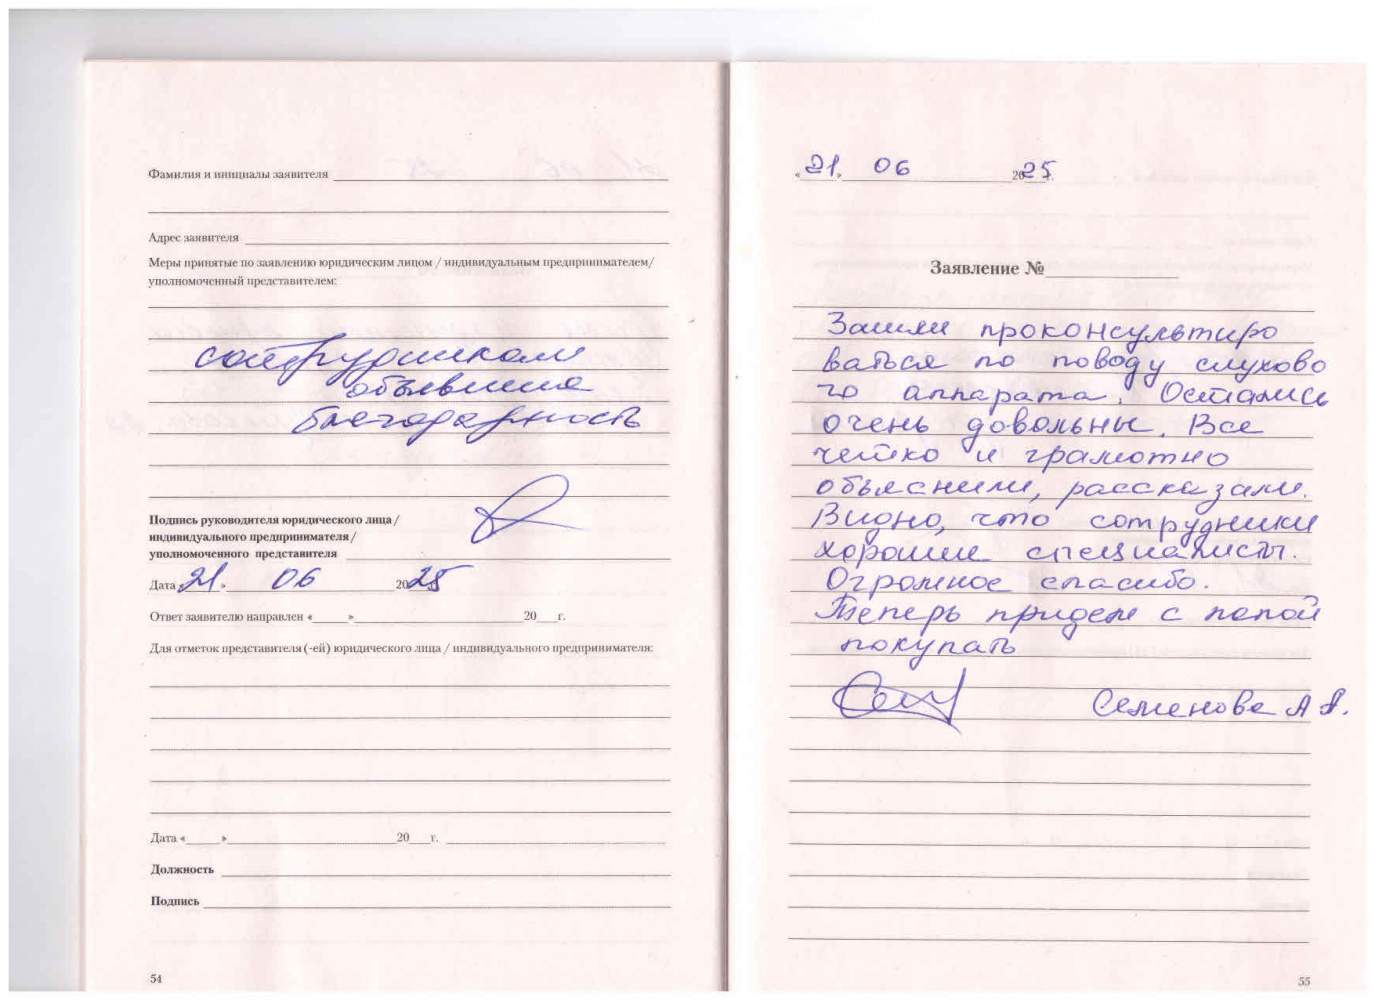 Фамилия и инициалы заявителя
Адрес заявителя
Меры принятые по заявлению юридическим лицом / индивидуальным предпринимателем/
уполномоченный представителем:
сотрудникам
объявлена
благодарность
Подпись руководителя юридического лица/
индивидуального предпринимателя/
уполномоченного представителя
Дата «21» 06 2025
Ответ заявителю направлен « » 20 г.
Для отметок представителя (-ей) юридического лица / индивидуального предпринимателя:
Дата « » 20 г.
Должность
Подпись
54
«21» 06 2025 г.
Заявление №
Зашли проконсультиро
ваться по поводу слухово
го аппарата. Остались
очень довольны. Все
четко и грамотно
объяснили, рассказали.
Видно, что сотрудники
хорошие специалисты.
Огромное спасибо.
Теперь придем с папой
покупать
Семенова А А.
55